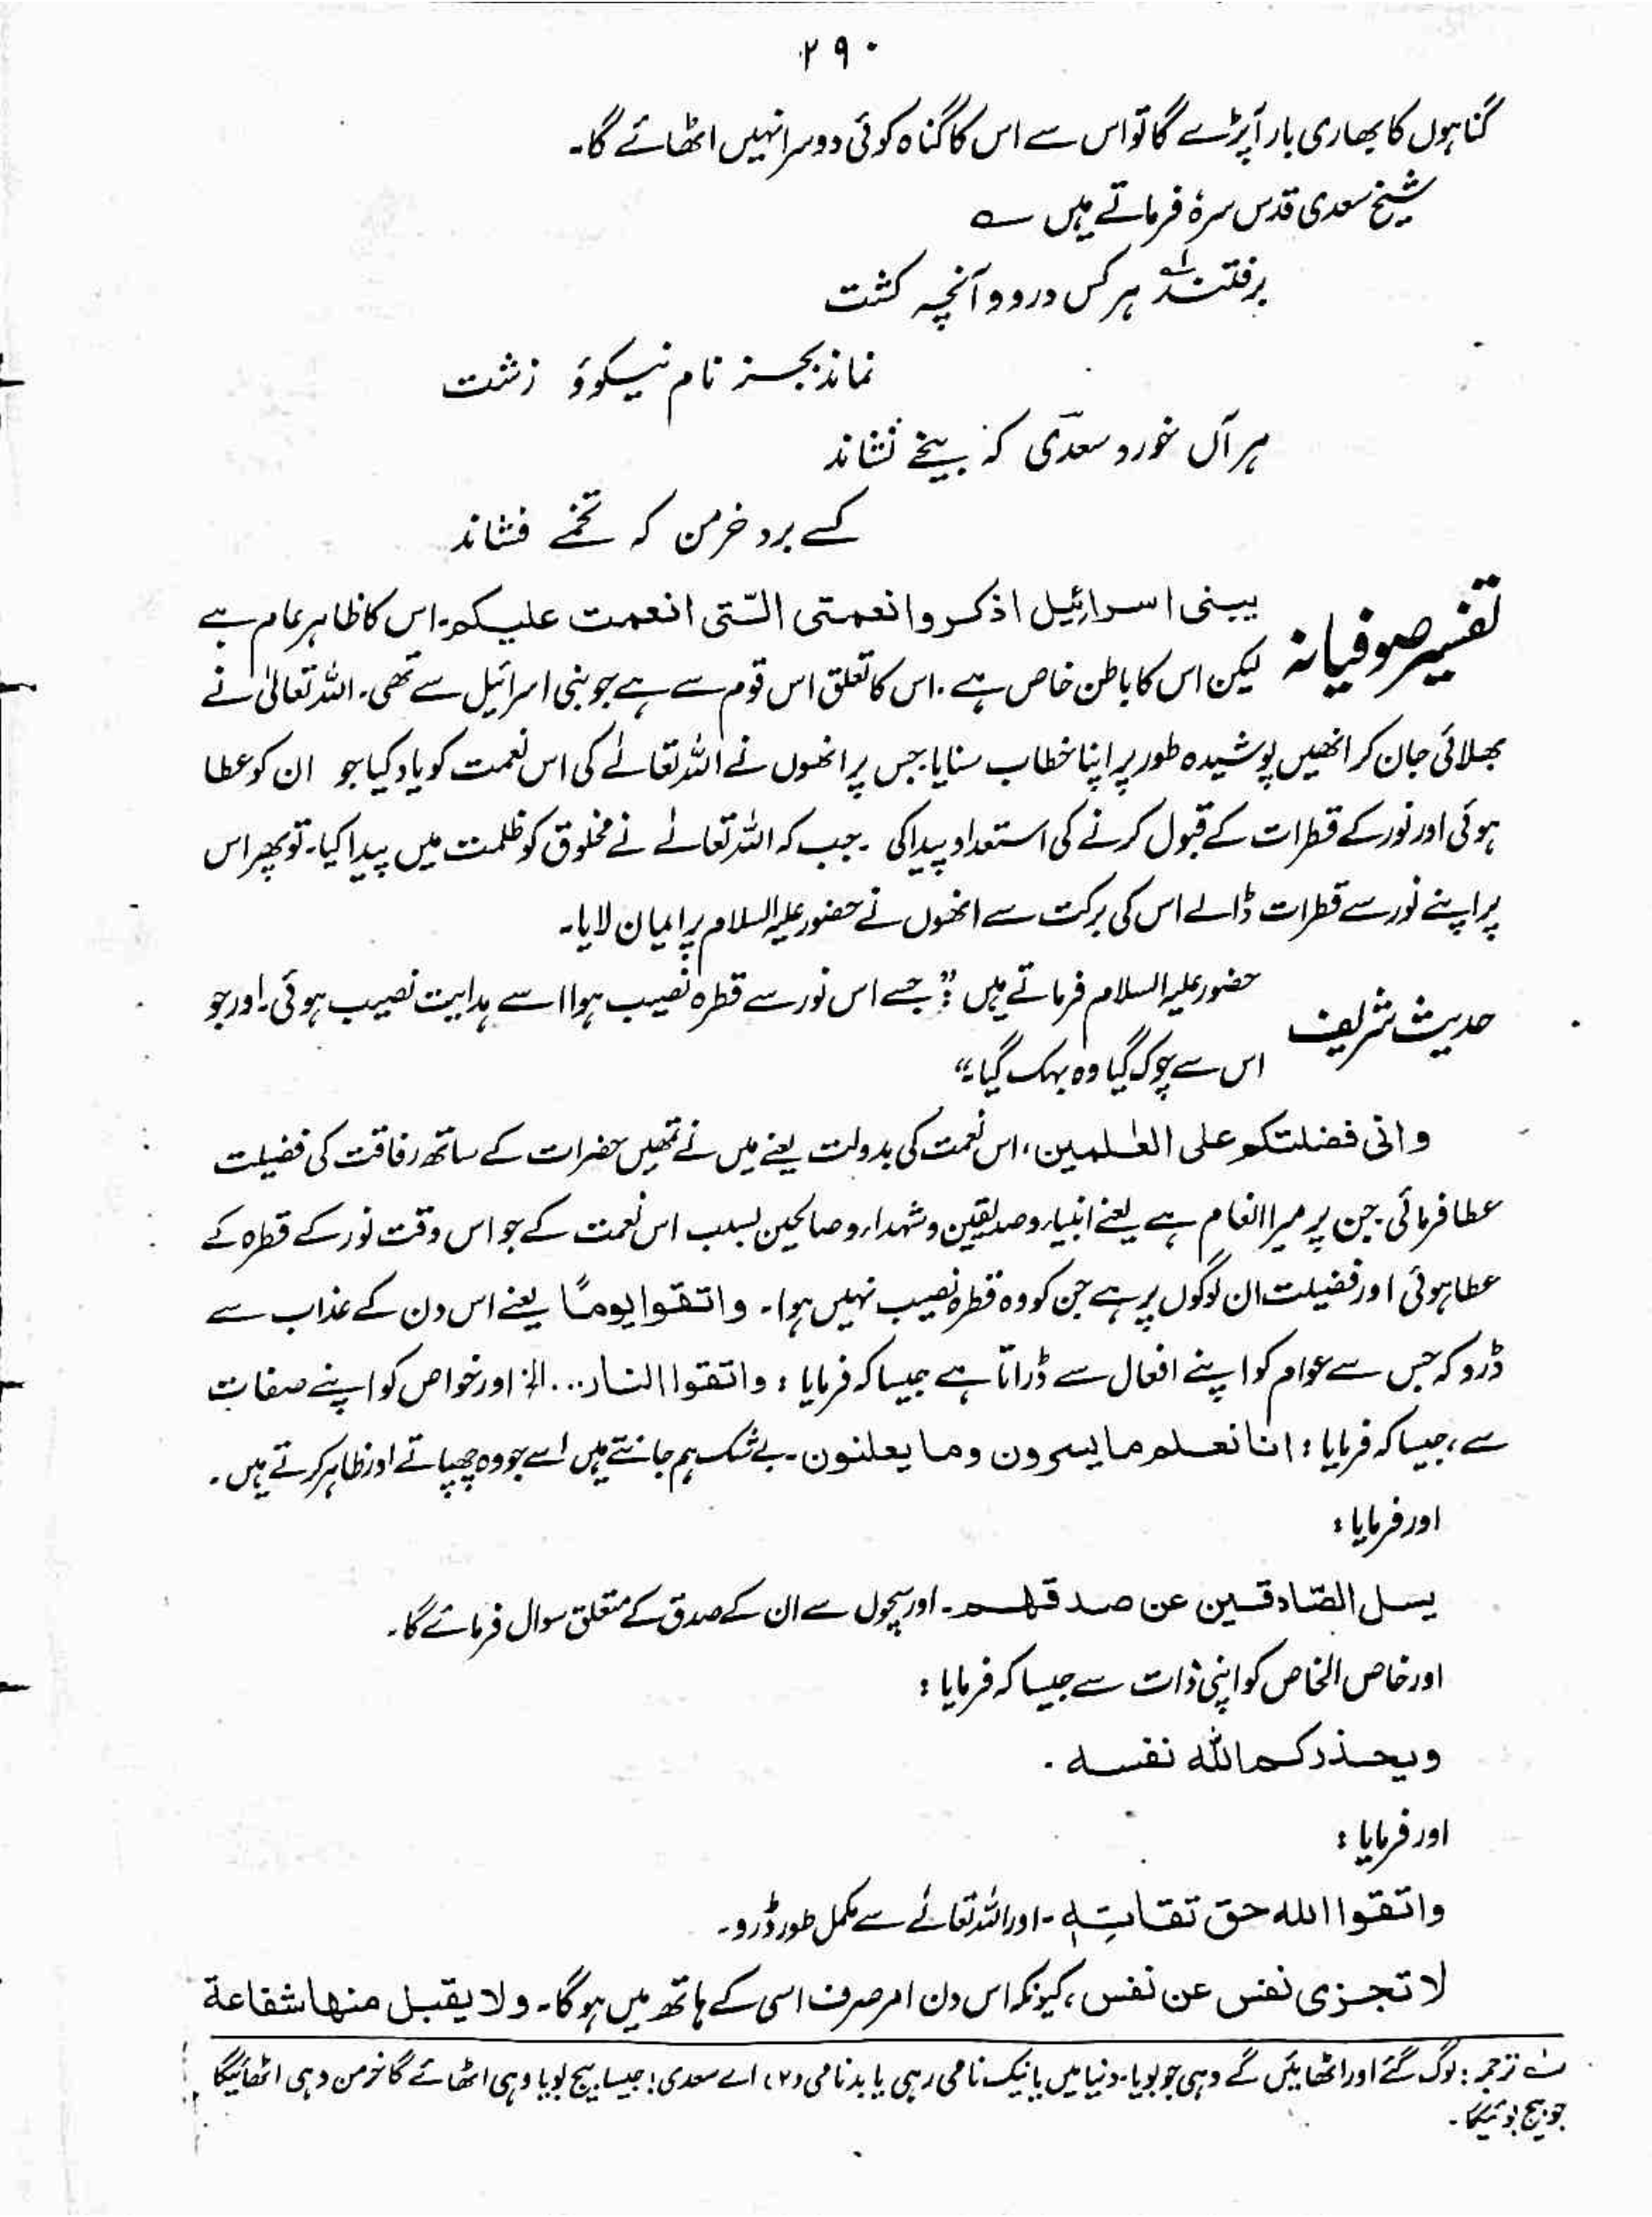 ۲۹۰
گناہوں کا بھاری بار آپڑے گا تو اس سے اس کا گناہ کوئی دوسرا نہیں اٹھائے گا۔
شیخ سعدی قدس سرہٗ فرماتے ہیں ؎
برفتند ہر کس درود آنچہ کشت
نماند بجز نام نیکوؤ زشت
ہر آں خورد سعدیؔ کہ بیخے نشاند
کسے برد خرمن کہ تخمے فشاند
تفسیر صوفیانہ یبنی اسرائیل اذکروا نعمتی الّتی انعمت علیکم۔ اس کا ظاہر عام ہے
لیکن اس کا باطن خاص ہے۔ اس کا تعلق اس قوم سے ہے جو بنی اسرائیل سے تھی۔ اللہ تعالیٰ نے
بھلائی جان کر انھیں پوشیدہ طور پر اپنا خطاب سنایا جس پر انھوں نے اللہ تعالےٰ کی اس نعمت کو یاد کیا جو ان کو عطا
ہوئی اور نور کے قطرات کے قبول کرنے کی استعداد پیدا کی ۔ جب کہ اللہ تعالےٰ نے مخلوق کو ظلمت میں پیدا کیا۔ تو پھر اس
پر اپنے نور سے قطرات ڈالے اس کی برکت سے انھوں نے حضور علیہ السلام پر ایمان لایا۔
حدیث شریف حضور علیہ السلام فرماتے ہیں : "جسے اس نور سے قطرہ نصیب ہوا اسے ہدایت نصیب ہوئی۔ اور جو
اس سے چوک گیا وہ بہک گیا۔"
وانی فضلتکم علی العٰلمین، اس نعمت کی بدولت یعنے میں نے تمھیں حضرات کے ساتھ رفاقت کی فضیلت
عطا فرمائی جن پر میرا انعام ہے یعنے انبیاء و صدیقین و شہداء و صالحین بسبب اس نعمت کے جو اس وقت نور کے قطرہ کے
عطا ہوئی اور فضیلت ان لوگوں پر ہے جن کو وہ قطرہ نصیب نہیں ہوا۔ واتقوا یوماً یعنے اس دن کے عذاب سے
ڈرو کہ جس سے عوام کو اپنے افعال سے ڈراتا ہے جیسا کہ فرمایا : واتقوا النار... الخ اور خواص کو اپنے صفات
سے، جیسا کہ فرمایا : انا نعلم ما یسرون وما یعلنون۔ بے شک ہم جانتے ہیں اسے جو وہ چھپاتے اور ظاہر کرتے ہیں۔
اور فرمایا :
یسل الصّادقین عن صدقھم۔ اور سچوں سے ان کے صدق کے متعلق سوال فرمائے گا۔
اور خاص الخاص کو اپنی ذات سے جیسا کہ فرمایا :
ویحذرکم اللہ نفسہ ۔
اور فرمایا :
واتقوا اللہ حق تقاتِہٖ۔ اور اللہ تعالےٰ سے مکمل طور ڈرو۔
لا تجزی نفس عن نفس، کیونکہ اس دن امر صرف اسی کے ہاتھ میں ہوگا۔ ولا یقبل منھا شفاعة
ترجمہ : لوگ گئے اور اٹھائیں گے وہی جو بویا۔ دنیا میں یا نیک نامی رہی یا بدنامی (۲) اے سعدی! جیسا بیج بویا وہی اٹھائے گا خرمن وہی اٹھائیگا
جو بیج بوئیگا۔